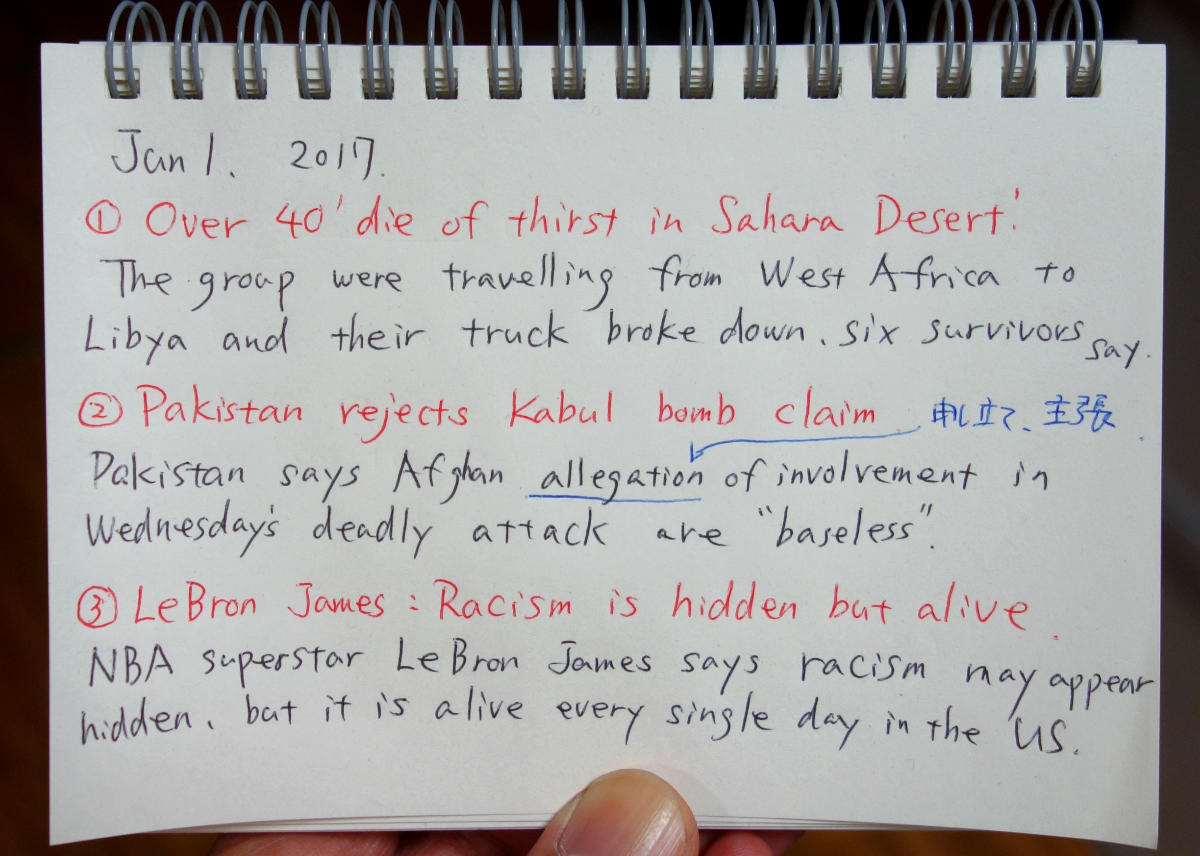 Jan 1. 2017.
① Over 40 'die of thirst in Sahara Desert'
The group were travelling from West Africa to
Libya and their truck broke down, six survivors say.
② Pakistan rejects Kabul bomb claim. 申し立て、主張.
Pakistan says Afghan allegation of involvement in
Wednesday's deadly attack are "baseless".
③ LeBron James : Racism is hidden but alive.
NBA superstar LeBron James says racism may appear
hidden, but it is alive every single day in the US.